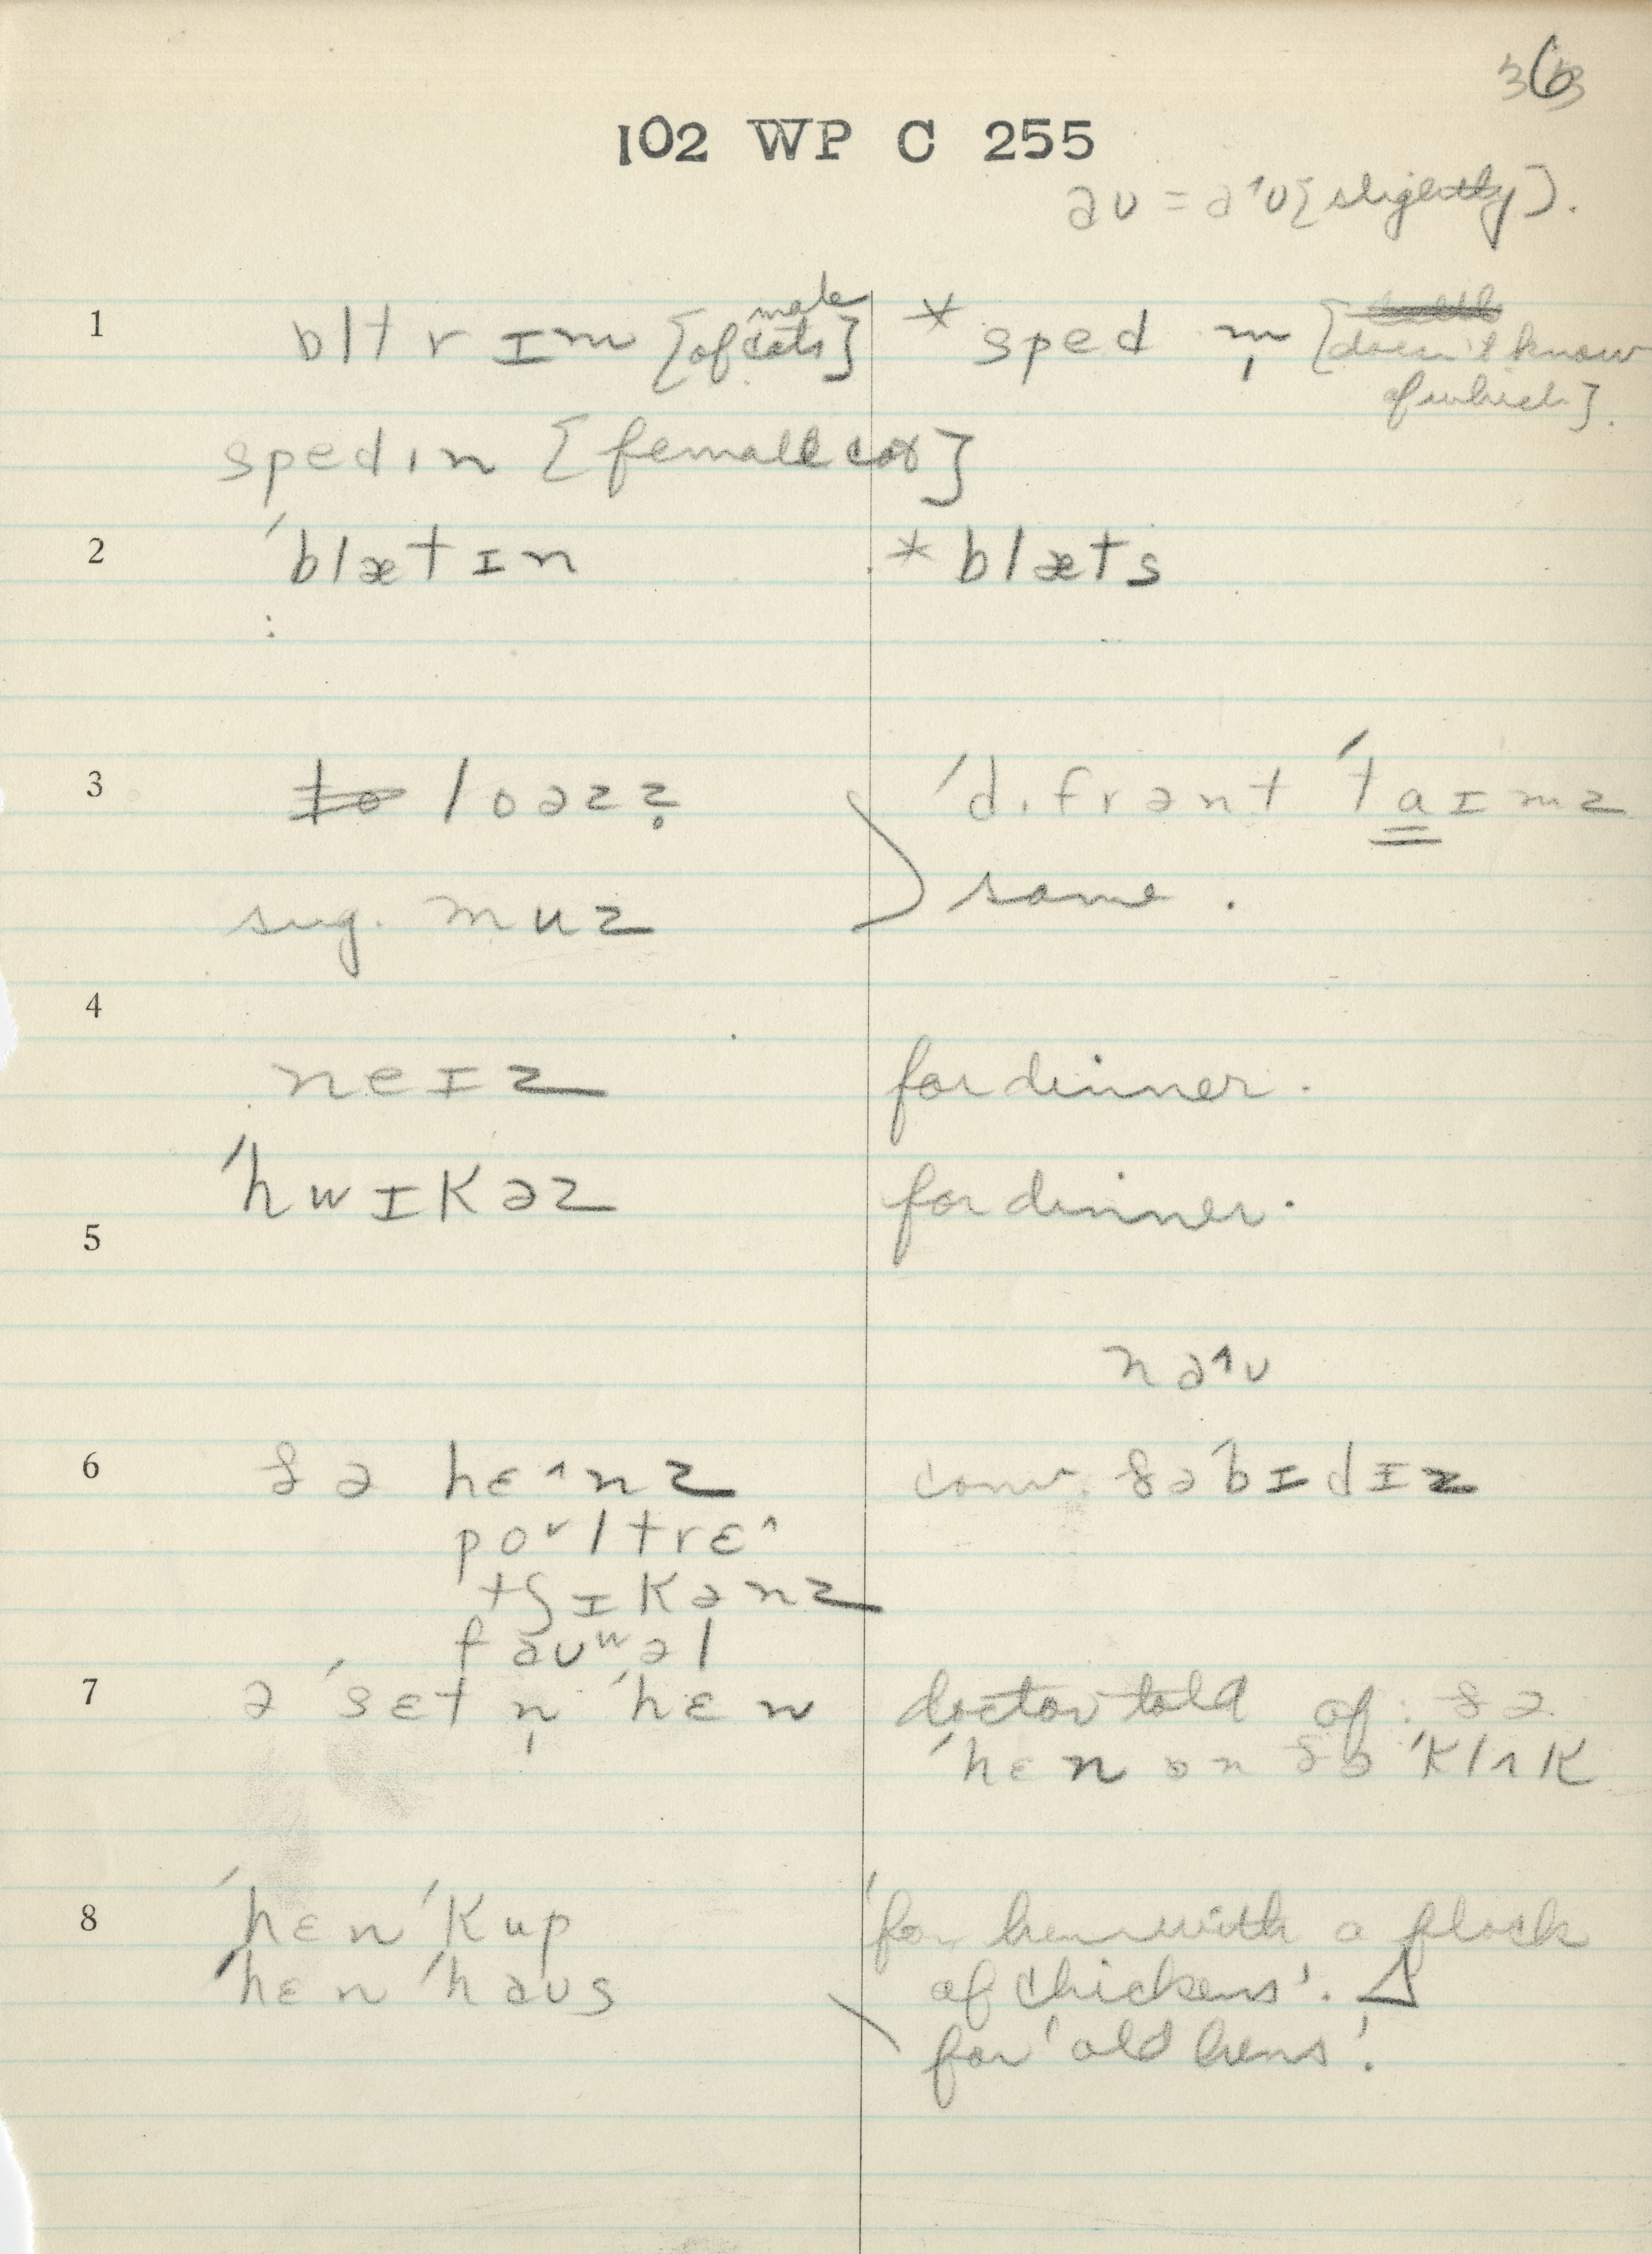 363
102 WP C 255
əʊ = ə^ʊ [slightly].
1 ɒltrɪm [of male cats] * sped m̩ [doesn't know of which].
spedɪn [female cat]
2 ˈblætɪn * blæts
3 loəz? ˈdɪfrənt ˈtaɪmz
sug. muz same.
4
neɪz for dinner.
ˈhwɪkəz for dinner.
5
nə^ʊ
6 ðə hɛ^nz conv. ðə ˈbɪdɪz
po˅ltrɛ^
tʃɪkənz
fəʊʷəl
7 ə ˈsɛtn̩ ˈhɛn doctor told of: ðə
ˈhɛn ɒn ðə ˈklʌk
8 ˈhɛn ˈkup 'for hen with a flock
ˈhɛn ˈhəʊs of chickens'. Δ
for 'old hens'.